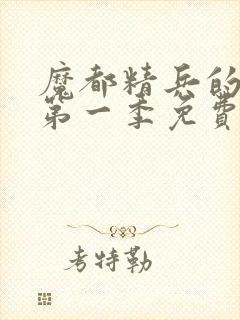 魔都精兵的
第一季免費
考特勒